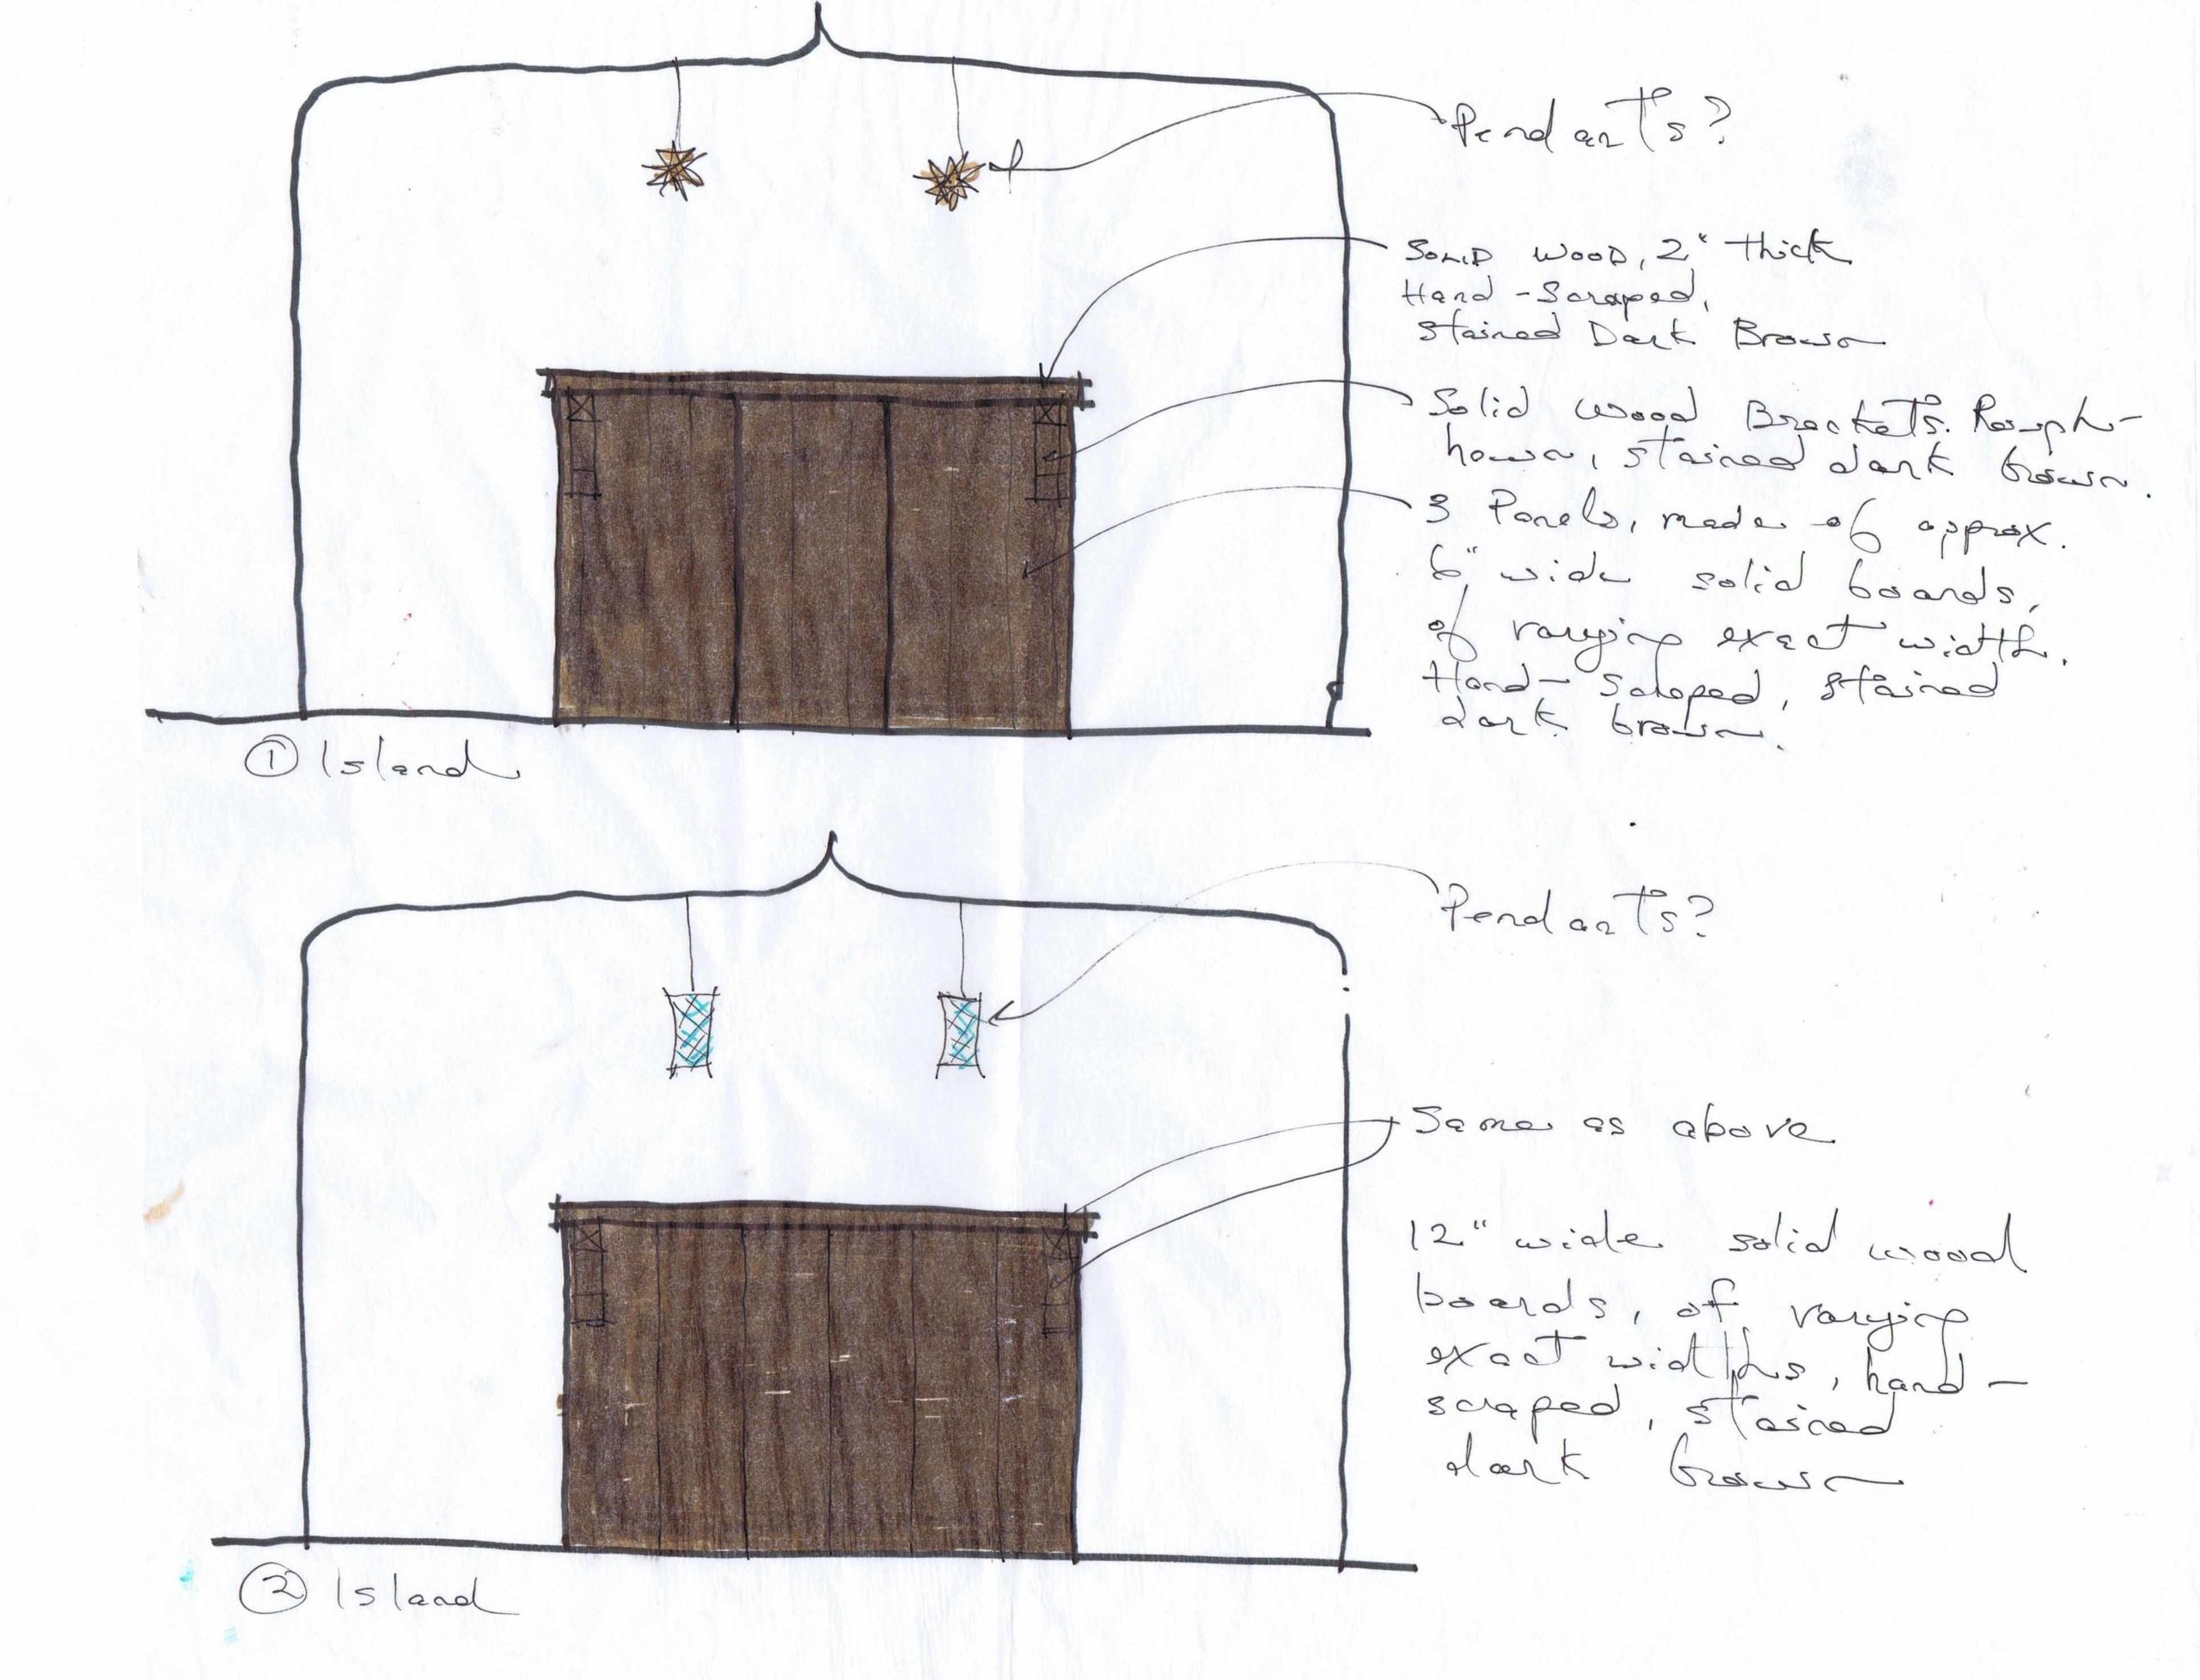 Pendants?
Solid Wood, 2" thick
Hand-Scraped,
Stained Dark Brown
Solid wood Brackets. Rough-
hewn, stained dark brown.
3 Panels, made of approx.
6" wide solid boards,
of varying exact width.
Hand-Scraped, stained
dark brown.
① Island
Pendants?
Same as above
12" wide solid wood
boards, of varying
exact widths, hand-
scraped, stained
dark brown
② Island